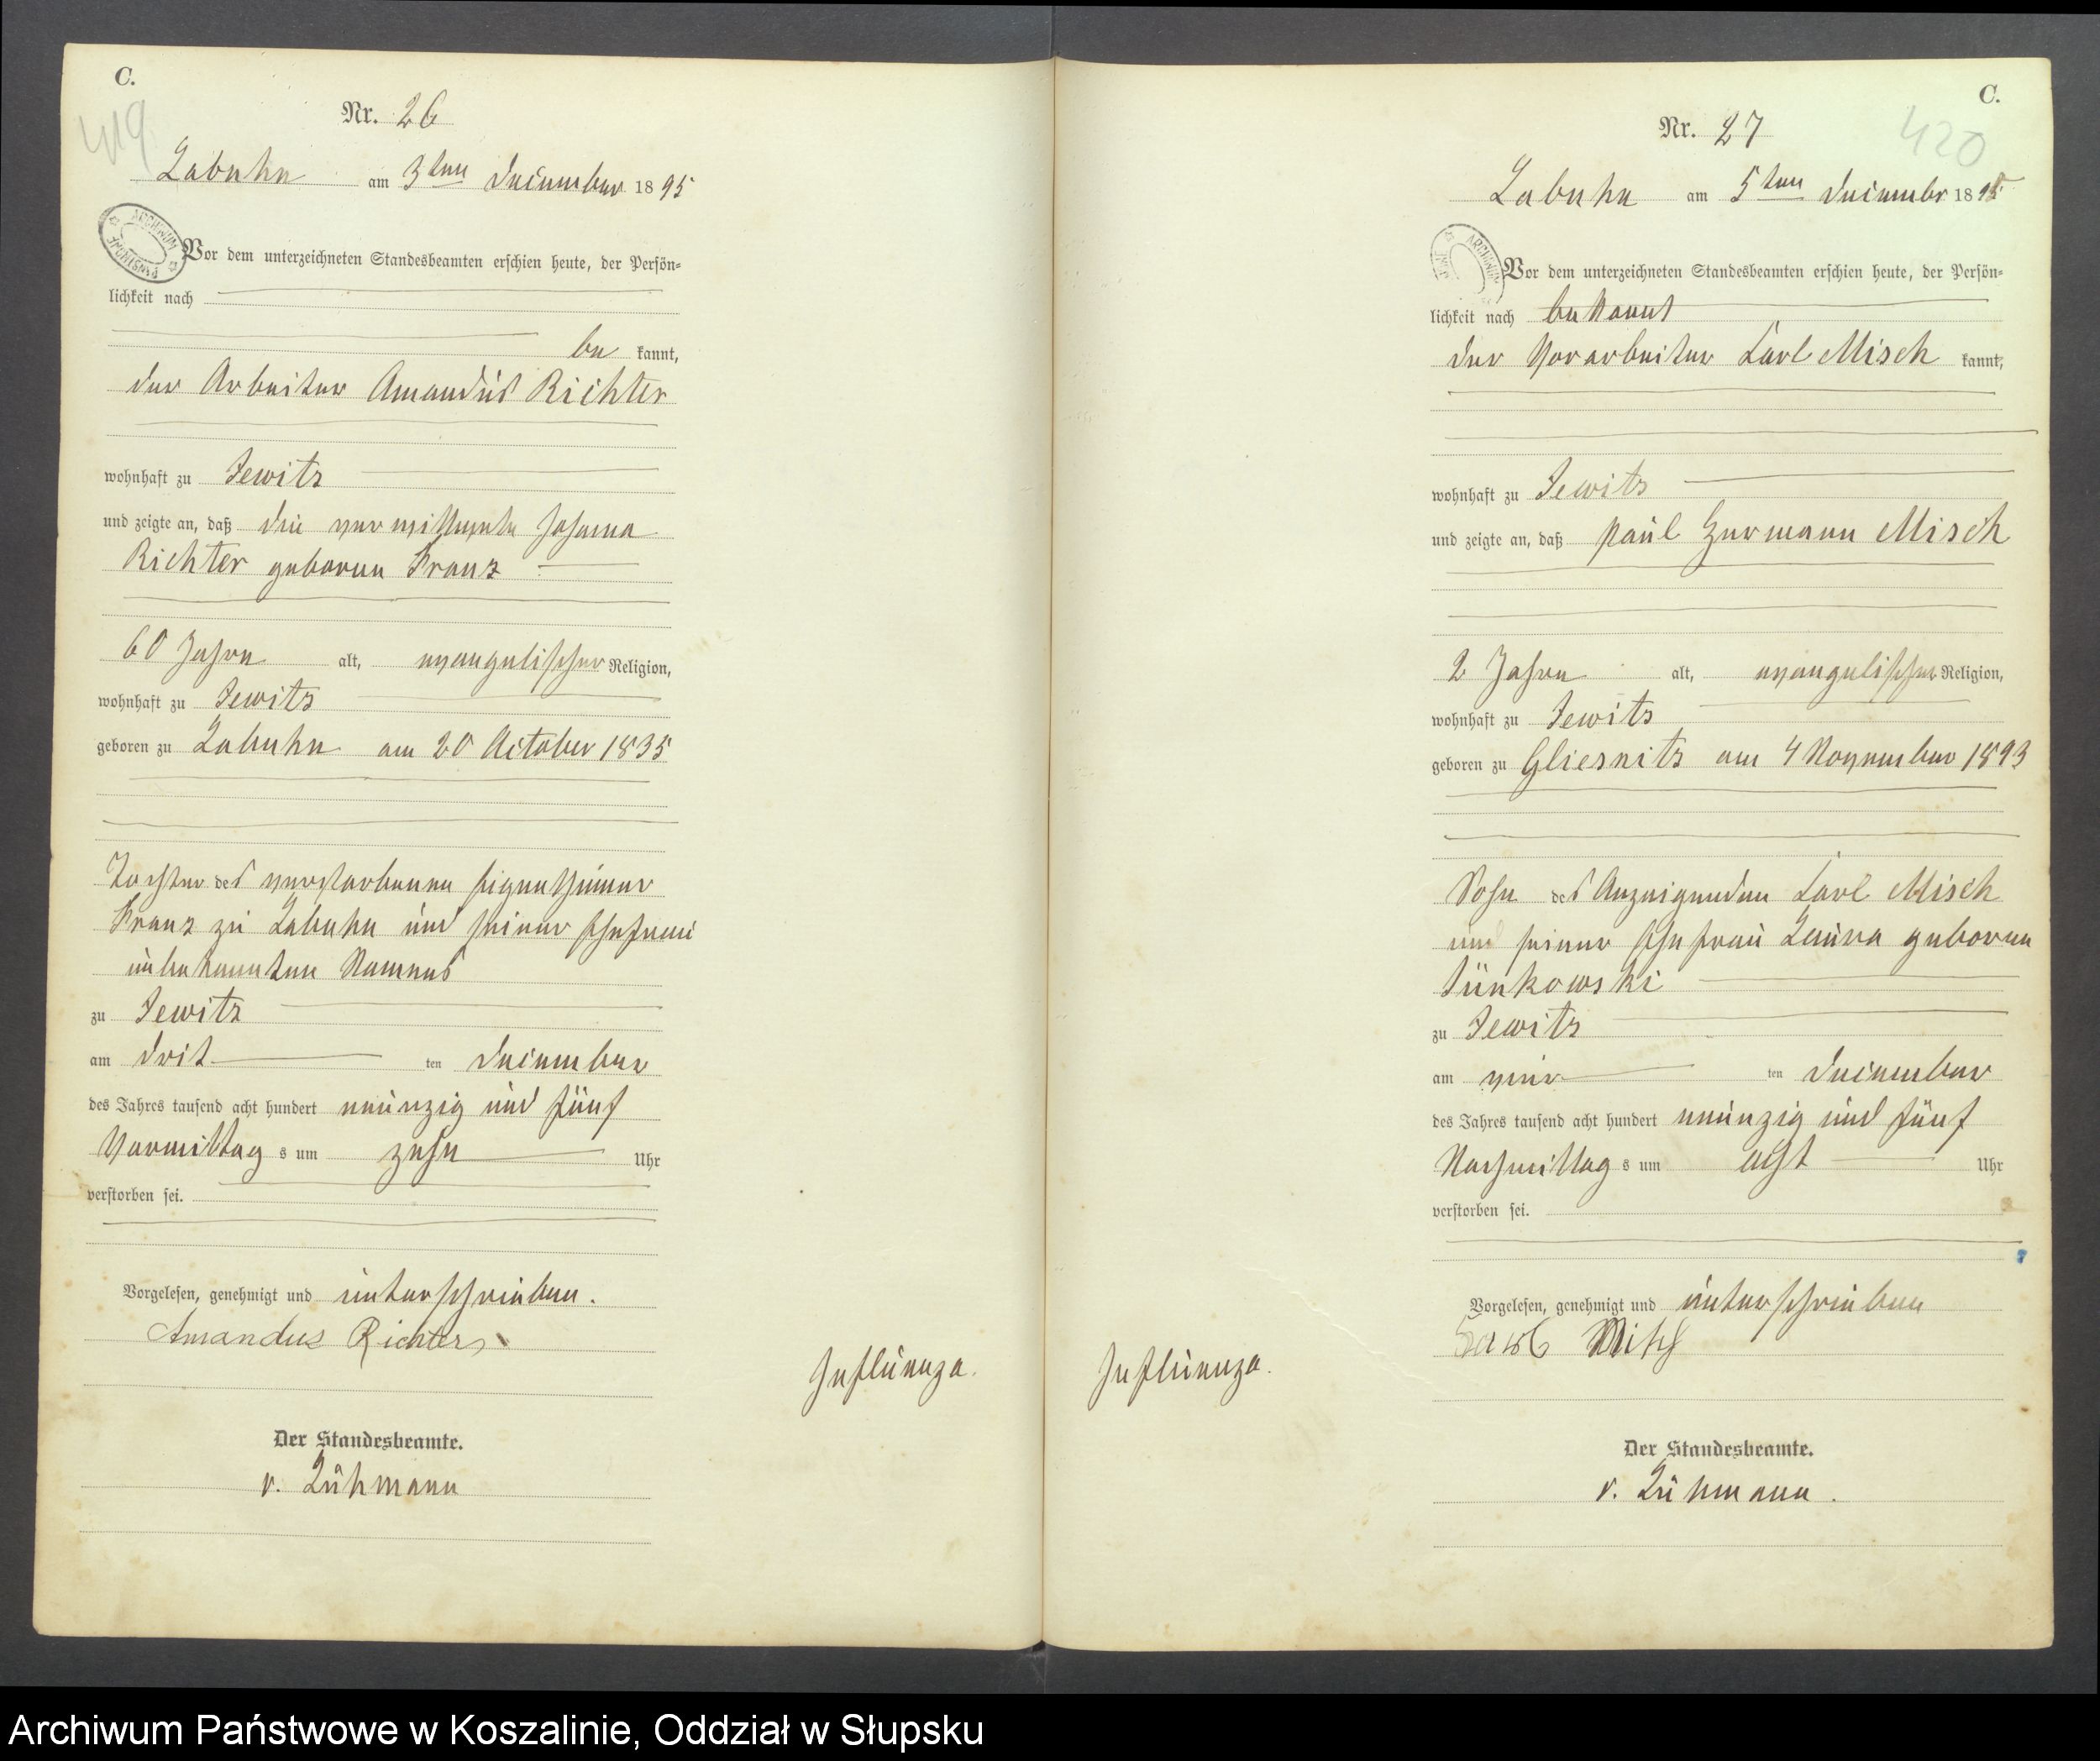 C.
419
Nr. 26
Labuhn am 3ten December 1895
ARCHIWUM
Vor dem unterzeichneten Standesbeamten erschien heute, der Persön=
lichkeit nach
be kannt,
der Arbeiter Amandus Richter
wohnhaft zu Jewitz
und zeigte an, daß die verwittwete
Richter geboren Franz
60 Jahre alt, evangelischer Religion,
wohnhaft zu Jewitz
geboren zu Labuhn am 20 October 1835
Tochter des verstorbenen Eigenthümer
Franz zu Labuhn und seiner Ehefrau
unbekannten Namens
zu Jewitz
am drit ten December
des Jahres tausend acht hundert neunzig und fünf
Vormittag s um zehn Uhr
verstorben sei.
Vorgelesen, genehmigt und unterschrieben.
Amandus Richter
Der Standesbeamte.
v. Lühmann
Influenza.
C.
420
Nr. 27
Labuhn am 5ten Decembr 1895
ARCHIWUM
Vor dem unterzeichneten Standesbeamten erschien heute, der Persön=
lichkeit nach bekannt
der Vorarbeiter Carl Misch kannt,
wohnhaft zu Jewitz
und zeigte an, daß Paul Hermann Misch
2 Jahre alt, evangelischer Religion,
wohnhaft zu Jewitz
geboren zu Gliesnitz am 4 November 1893
Sohn des Anzeigenden Carl Misch
und seiner Ehefrau Laura geboren
zu Jewitz
am vier ten December
des Jahres tausend acht hundert neunzig und fünf
Nachmittag s um acht Uhr
verstorben sei.
Vorgelesen, genehmigt und unterschrieben
Der Standesbeamte.
v. Lühmann.
Influenza.
Archiwum Państwowe w Koszalinie, Oddział w Słupsku